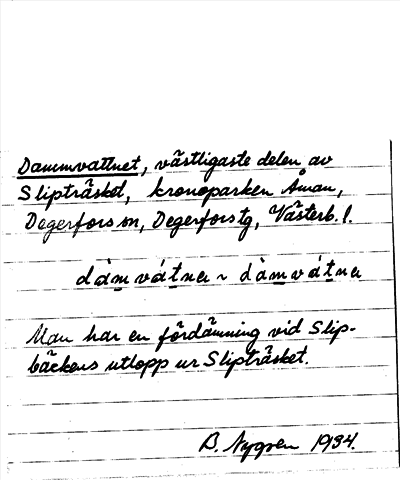 Dammvattnet, västligaste delen av
Slipträsket, kronoparken Åman,
Degerfors sn, Degerfors tg, Västerb. l.
dàmvátnɐ ~ dàmvátnɐ
Man har en fördämning vid Slip-
bäckens utlopp ur Slipträsket.
B. Nygren 1934.